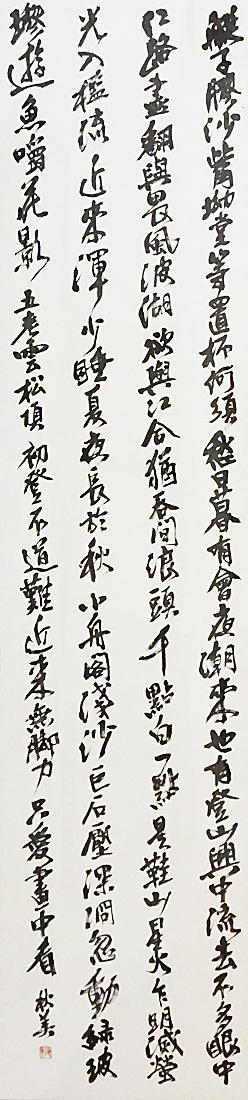 艇子膠沙觜坳堂等置杯何須愁日暮有會夜潮來也有登山興中流去不多眼中
仁路盡翻與畏風波湖欲與江合猶吞間浪頭千點白一點是鞋山星火乍明滅螢
光入檻流近來渾少睡夏夜長於秋小舟閣淺沙巨石壓深澗忽動綠玻
璃遊魚嚼花影五老雲松頂初登不道難近來無脚力只愛畫中看